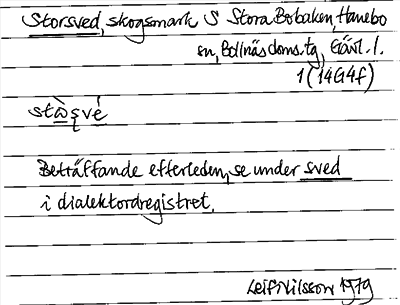 Storsved, skogsmark S Stora Bobaken, Hanebo
sn, Bollnäs doms.tg, Gävl. l.
1 (14G4f)
Beträffande efterleden, se under sved
i dialektordregistret.
Leif Nilsson 1979